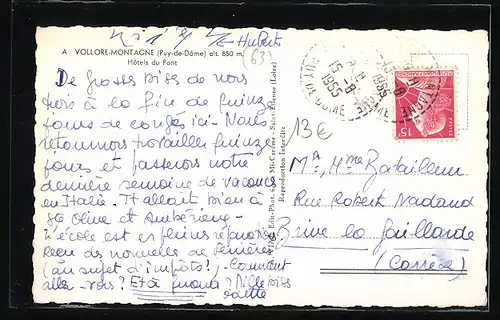 A VOLLORE-MONTAGNE (Puy-de-Dôme) alt. 850 m.
Hôtels du Pont
Hubert
(63)
De grosses bises de nous
à la fin de quinze
jours de congés ici - Nous
retournons travailler quinze
jours et passerons notre
dernière semaine de vacances
en Italie - Tt allait bien à
Ste Olive et Ambérieu -
L'école est en pleines réparations
de nouvelle de
(au sujet d'impôts!) - Comment
allez-vous? Et à quand? Mille bises
Edit. Phot. Mi-Carême - Saint-Etienne (Loire)
Reproduction Interdite
PUY-DE-DÔME
15 -8
1955
13€
15F
POSTES
Mr, Mme Batailleur
Rue Robert Nadaud
Brive la Gaillarde
(Corrèze)